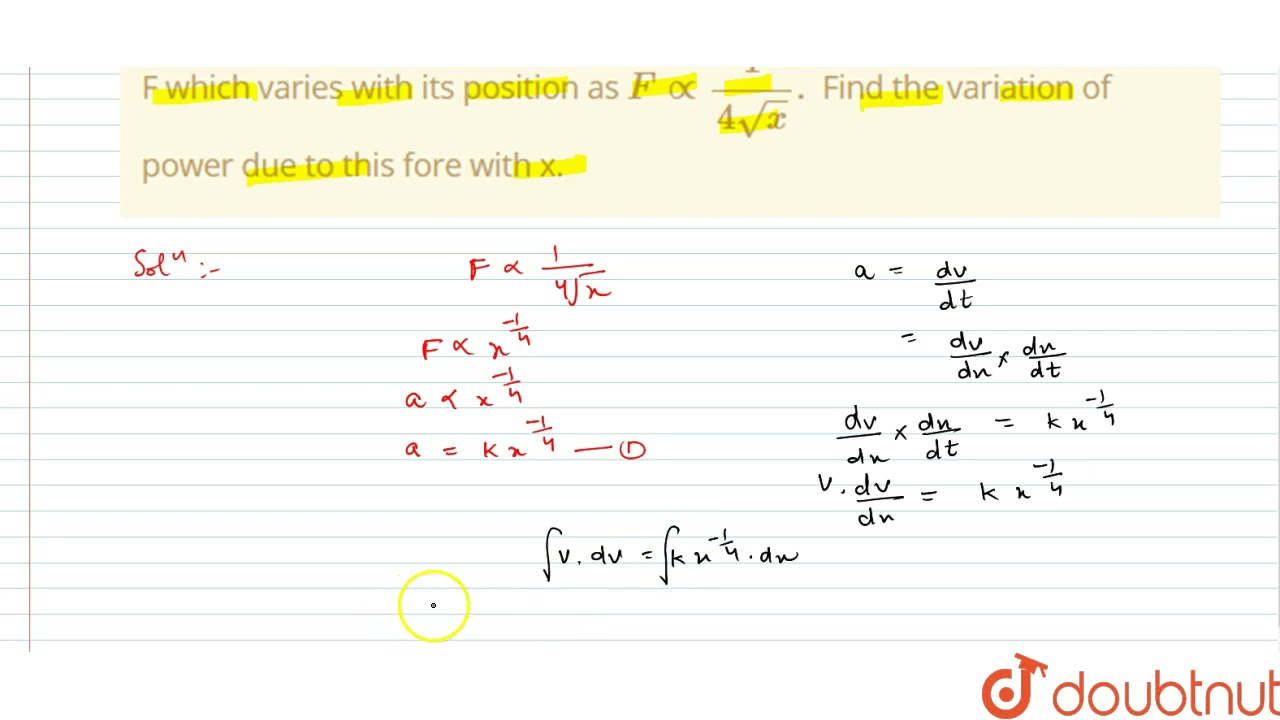 F which varies with its position as F ∝ 1/4√x. Find the variation of
power due to this fore with x.
Solⁿ :-
F ∝ 1/4√x
F ∝ x^-1/4
a ∝ x^-1/4
a = k x^-1/4 — ①
a = dv/dt
= dv/dx × dx/dt
dv/dx × dx/dt = k x^-1/4
v. dv/dx = k x^-1/4
∫v. dv = ∫k x^-1/4 . dx
doubtnut